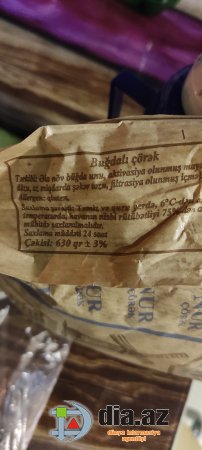 Buğdalı çörək
Tərkibi: Əla növ buğda unu, aktivasiya olunmuş may
az miqdarda şəkər tozu, filtrasiya olunmuş İçmə
Allergen: qluten.
Saxlanma şəraiti: Təmiz və quru yerdə, 6°C-d
temperaturda, havanın nisbi rütubətliyi 75%
mühitdə saxlanmalıdır.
Saxlama müddəti 24 saat
Çəkisi: 630 qr ± 3%
NUR
dia.az
dünya informasiya
agentliyi